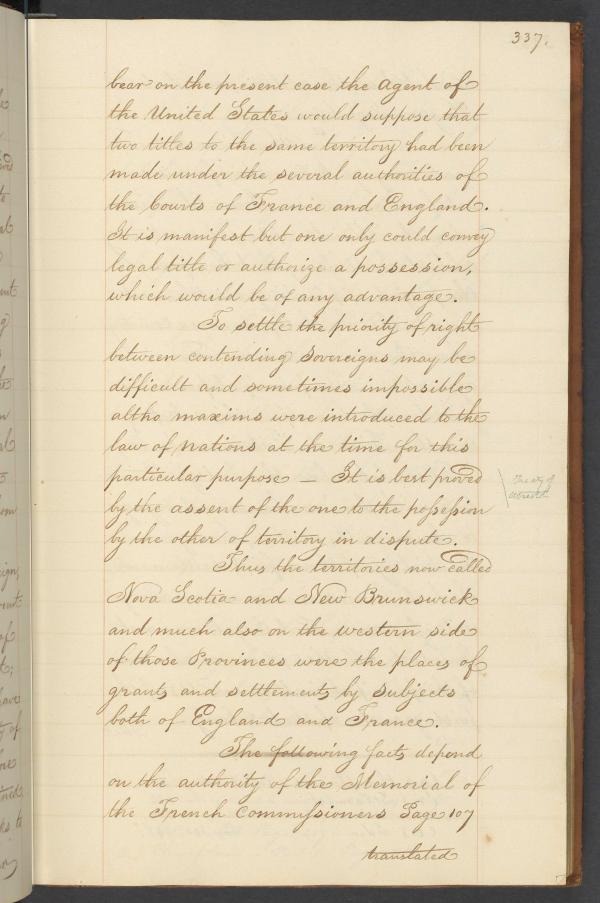 337.
bear on the present case the Agent of
the United States would suppose that
two titles to the same territory had been
made under the several authorities of
the Courts of France and England.
It is manifest but one only could convey
legal title or authorize a possession,
which would be of any advantage.
To settle the priority of right
between contending Sovereigns may be
difficult and sometimes impossible
altho maxims were introduced to the
law of nations at the time for this
particular purpose — It is best proved
by the assent of the one to the possession
by the other of territory in dispute.
Treaty of
Utrecht
Thus the territories now called
Nova Scotia and New Brunswick
and much also on the western side
of those Provinces were the places of
grants and settlements by subjects
both of England and France.
The following facts depend
on the authority of the Memorial of
the French Commissioners Page 107
translated